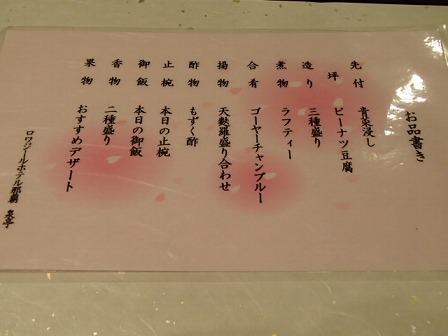 お品書き
先付 青菜浸し
坪 ピーナツ豆腐
造り 三種盛り
煮物 ラフティー
合肴 ゴーヤーチャンプルー
揚物 天麩羅盛り合わせ
酢物 もずく酢
止椀 本日の止椀
御飯 本日の御飯
香物 二種盛り
果物 おすすめデザート
ロワジールホテル那覇 泉亭